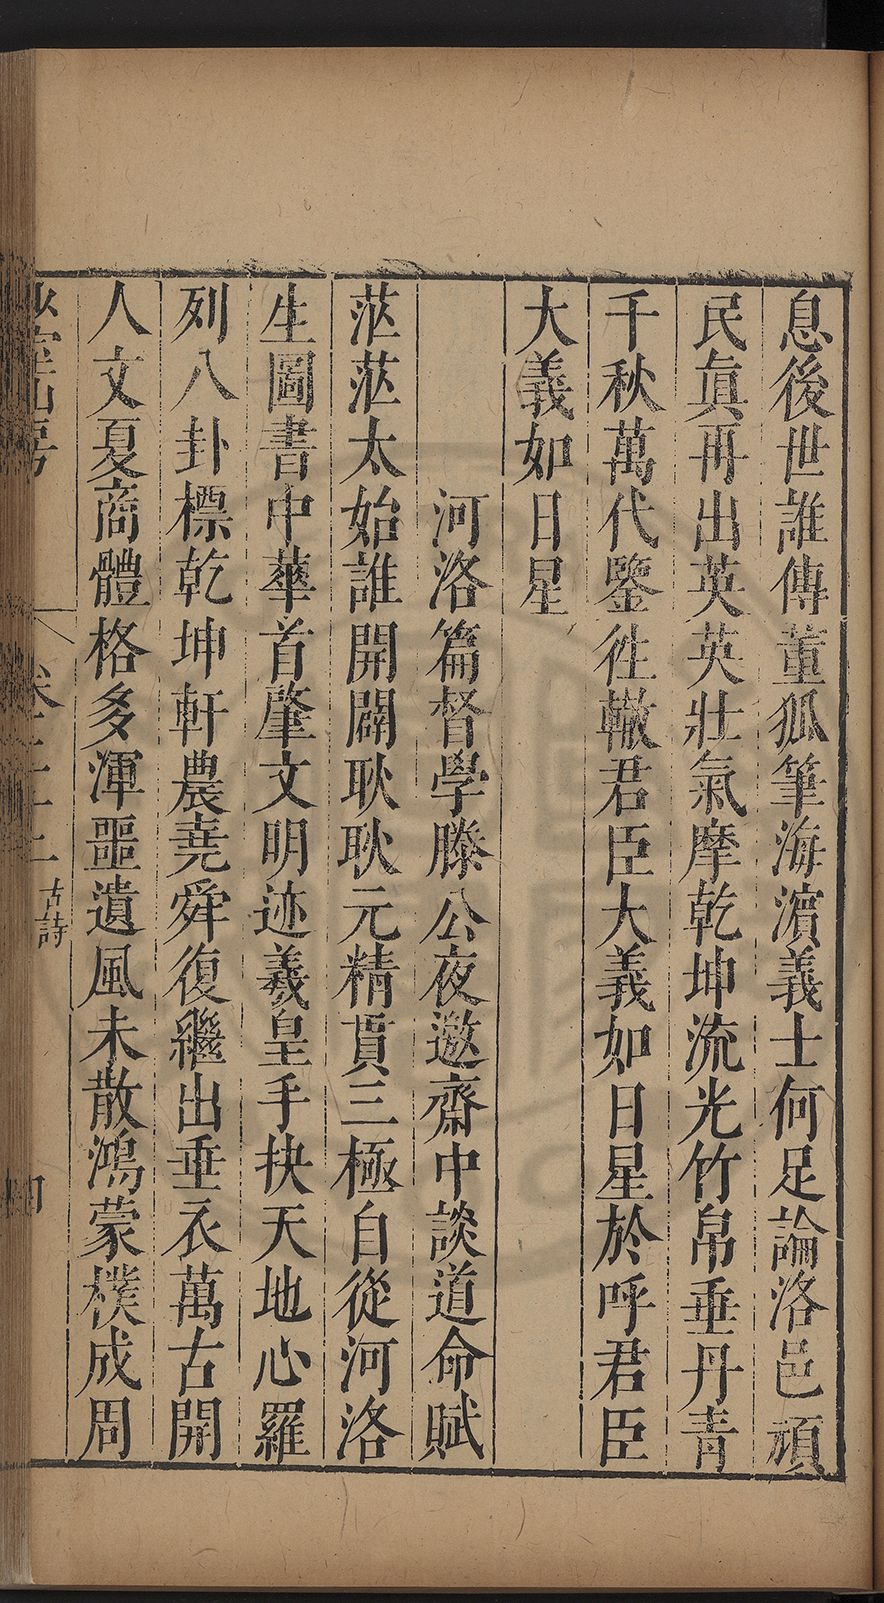 息後世誰傳董狐筆海濵義士何足論洛邑頑
民眞再出英英壯氣摩乾坤流光竹帛垂丹青
千秋萬代鑒徃轍君臣大義如日星於呼君臣
大義如日星
河洛篇督學滕公夜邀齋中談道命賦
茫茫太始誰開闢耿耿元精貫三極自從河洛
生圖書中華首肇文明迹羲皇手抉天地心羅
列八卦標乾坤軒農堯舜復繼出垂衣萬古開
人文夏商體格多渾噩遺風未散鴻蒙樸成周
古詩